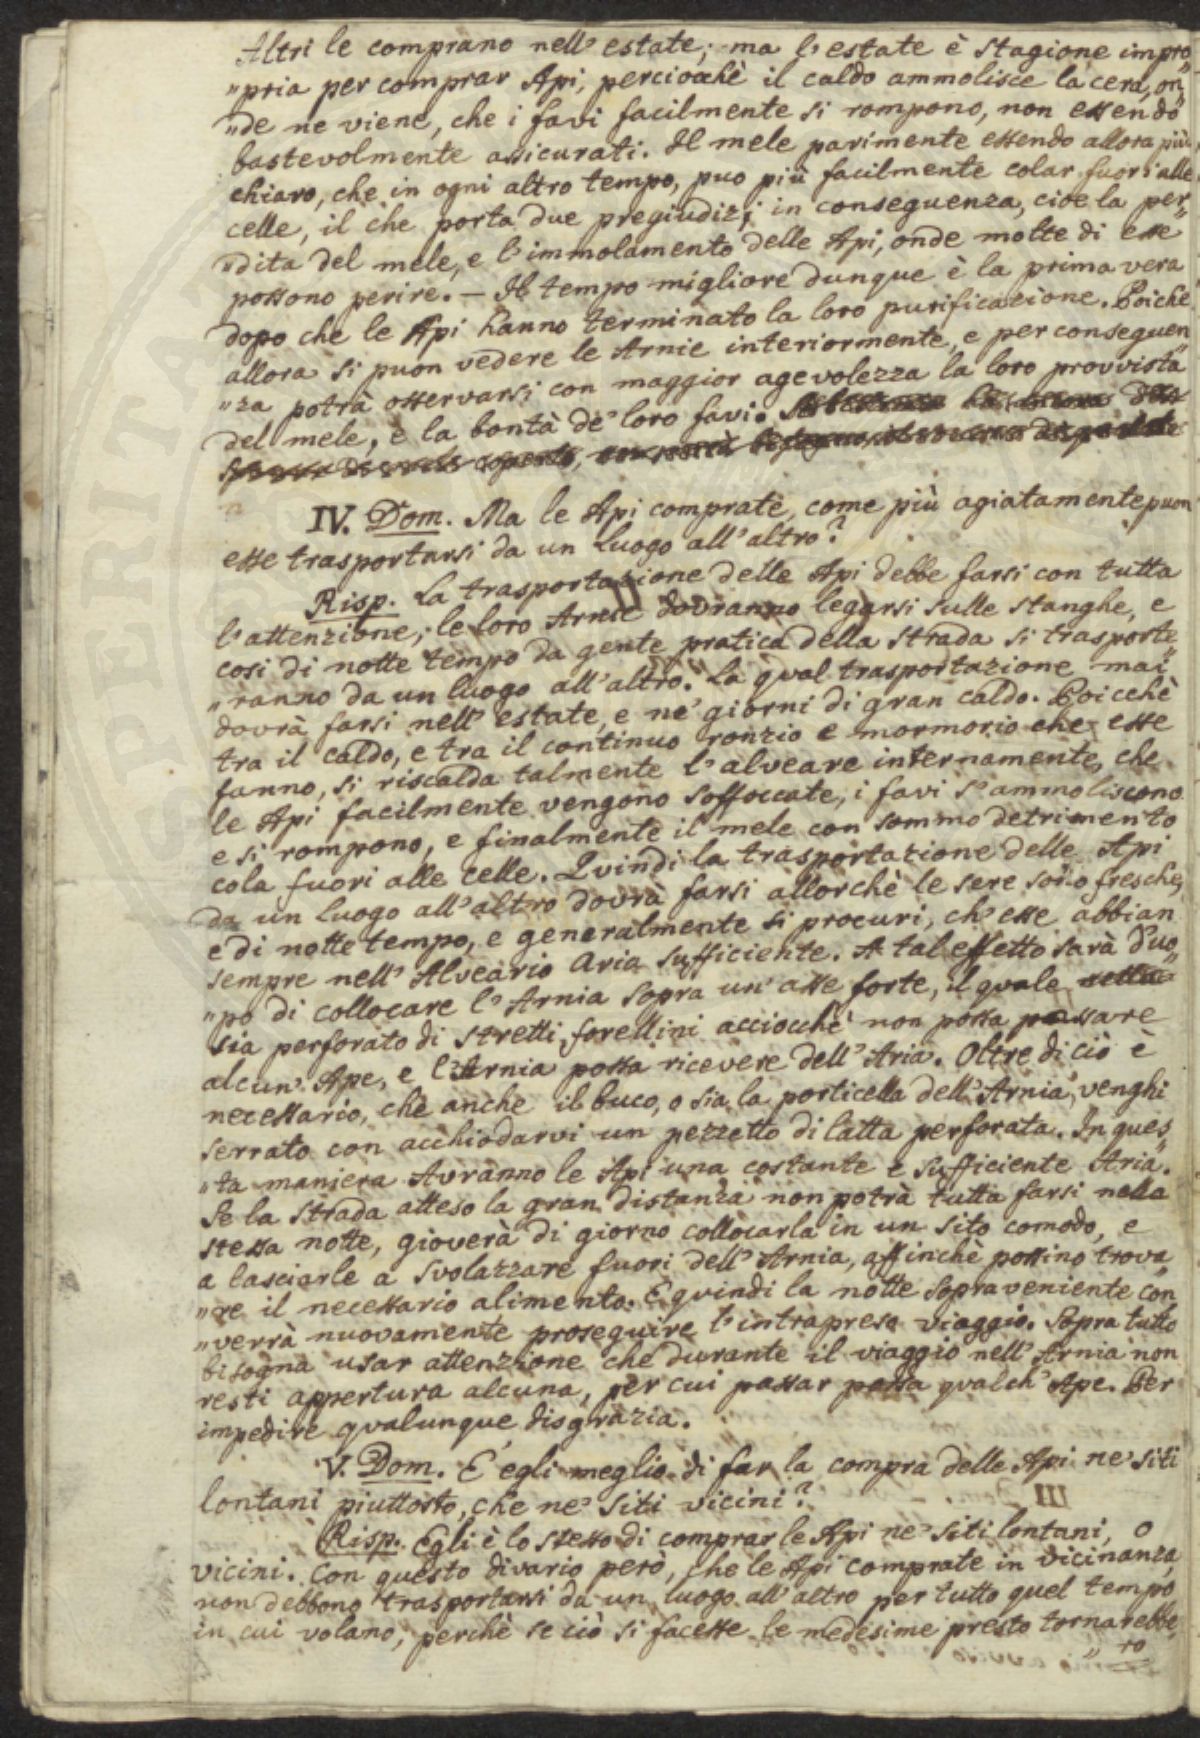 Altri le comprano nell' estate; ma l' estate è stagione impro„
„pria per comprar Api, perciocchè il caldo ammolisce la cera, on„
„de ne viene, che i favi facilmente si rompono, non essendo
bastevolmente assicurati. Il mele parimente essendo allora più
chiaro, che in ogni altro tempo, puo più facilmente colar fuori alle
celle, il che porta due pregiudizj in conseguenza, cioe la per„
„dita del mele, e l' immolamento delle Api, onde molte di esse
possono perire. — Il tempo migliore dunque è la primavera
dopo che le Api hanno terminato la loro purificazione. Poichè
allora si puon vedere le Arnie interiormente, e per conseguen„
„za potrà osservarsi con maggior agevolezza la loro provvista
del mele, e la bontà de' loro favi.
IV. Dom. Ma le Api comprate, come più agiatamente puon
esse trasportarsi da un Luogo all' altro?
Risp. La trasportazione delle Api debbe farsi con tutta
l' attenzione; le loro Arnie dovranno legarsi sulle stanghe, e
cosi di notte tempo da gente pratica della strada si trasporte„
„ranno da un luogo all' altro. La qual trasportazione mai
dovrà farsi nell' estate, e ne' giorni di gran caldo. Poicchè
tra il caldo, e tra il continuo ronzio e mormorio che esse
fanno, si riscalda talmente l' alveare internamente, che
le Api facilmente vengono soffoccate, i favi s' ammoliscono
e si rompono, e finalmente il mele con sommo detrimento
cola fuori alle celle. Quindi la trasportazione delle Api
da un Luogo all' altro dovrà farsi allorchè le sere sono fresche,
e di notte tempo, e generalmente si procuri, ch' esse abbian
sempre nell' Alveario Aria sufficiente. A tal effetto sarà d'uo„
„po di collocare l' Arnia sopra un' asse forte, il quale
sia perforato di stretti forellini acciocchè non possa passare
alcun' Ape, e l' Arnia possa ricevere dell' Aria. Oltre di ciò è
necessario, che anche il buco, o sia la porticella dell' Arnia, venghi
serrato con acchiodarvi un pezzetto di latta perforata. In ques„
„ta maniera Avranno le Api una costante e sufficiente Aria.
Se la strada atteso la gran distanza non potrà tutta farsi nella
stessa notte, gioverà di giorno collocarla in un sito comodo, e
a lasciarle a svolazzare fuori dell' Arnia, affinchè possino trova„
„re il necessario alimento. E quindi la notte sopraveniente con„
„verrà nuovamente proseguire l' intrapreso viaggio. Sopra tutto
bisogna usar attenzione che durante il viaggio nell' Arnia non
resti appertura alcuna, per cui passar possa qualch' Ape. Per
impedire qualunque disgrazia.
V. Dom. E' egli meglio di far la compra delle Api ne' siti
lontani piuttosto, che ne' siti vicini?
Risp. Egli è lo stesso di comprar le Api ne' siti lontani, o
vicini. Con questo divario però, che le Api comprate in vicinanza,
non debbono trasportarsi da un luogo all' altro per tutto quel tempo
in cui volano, perchè se ciò si facesse le medesime presto tornarebbe„
„ro